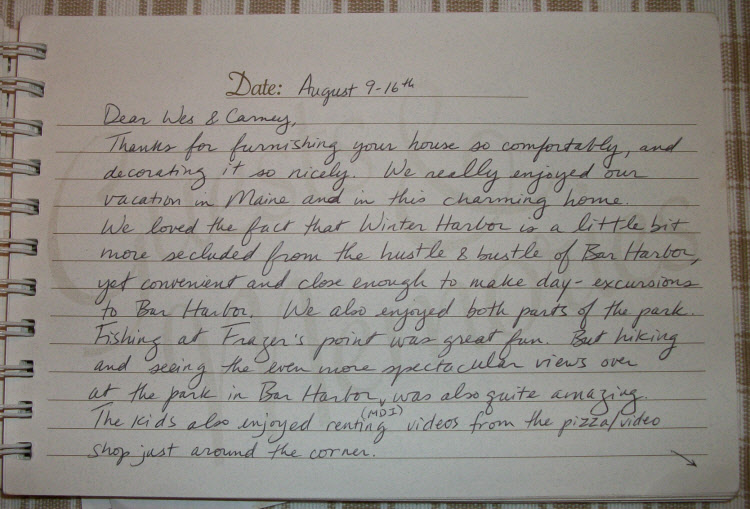 Date: August 9-16th
Dear Wes & Carney,
Thanks for furnishing your house so comfortably, and
decorating it so nicely. We really enjoyed our
vacation in Maine and in this charming home.
We loved the fact that Winter Harbor is a little bit
more secluded from the hustle & bustle of Bar Harbor,
yet convenient and close enough to make day-excursions
to Bar Harbor. We also enjoyed both parts of the park.
Fishing at Frazer's point was great fun. But hiking
and seeing the even more spectacular views over
at the park in Bar Harbor, was also quite amazing.
(MDI)
The kids also enjoyed renting videos from the pizza/video
shop just around the corner.